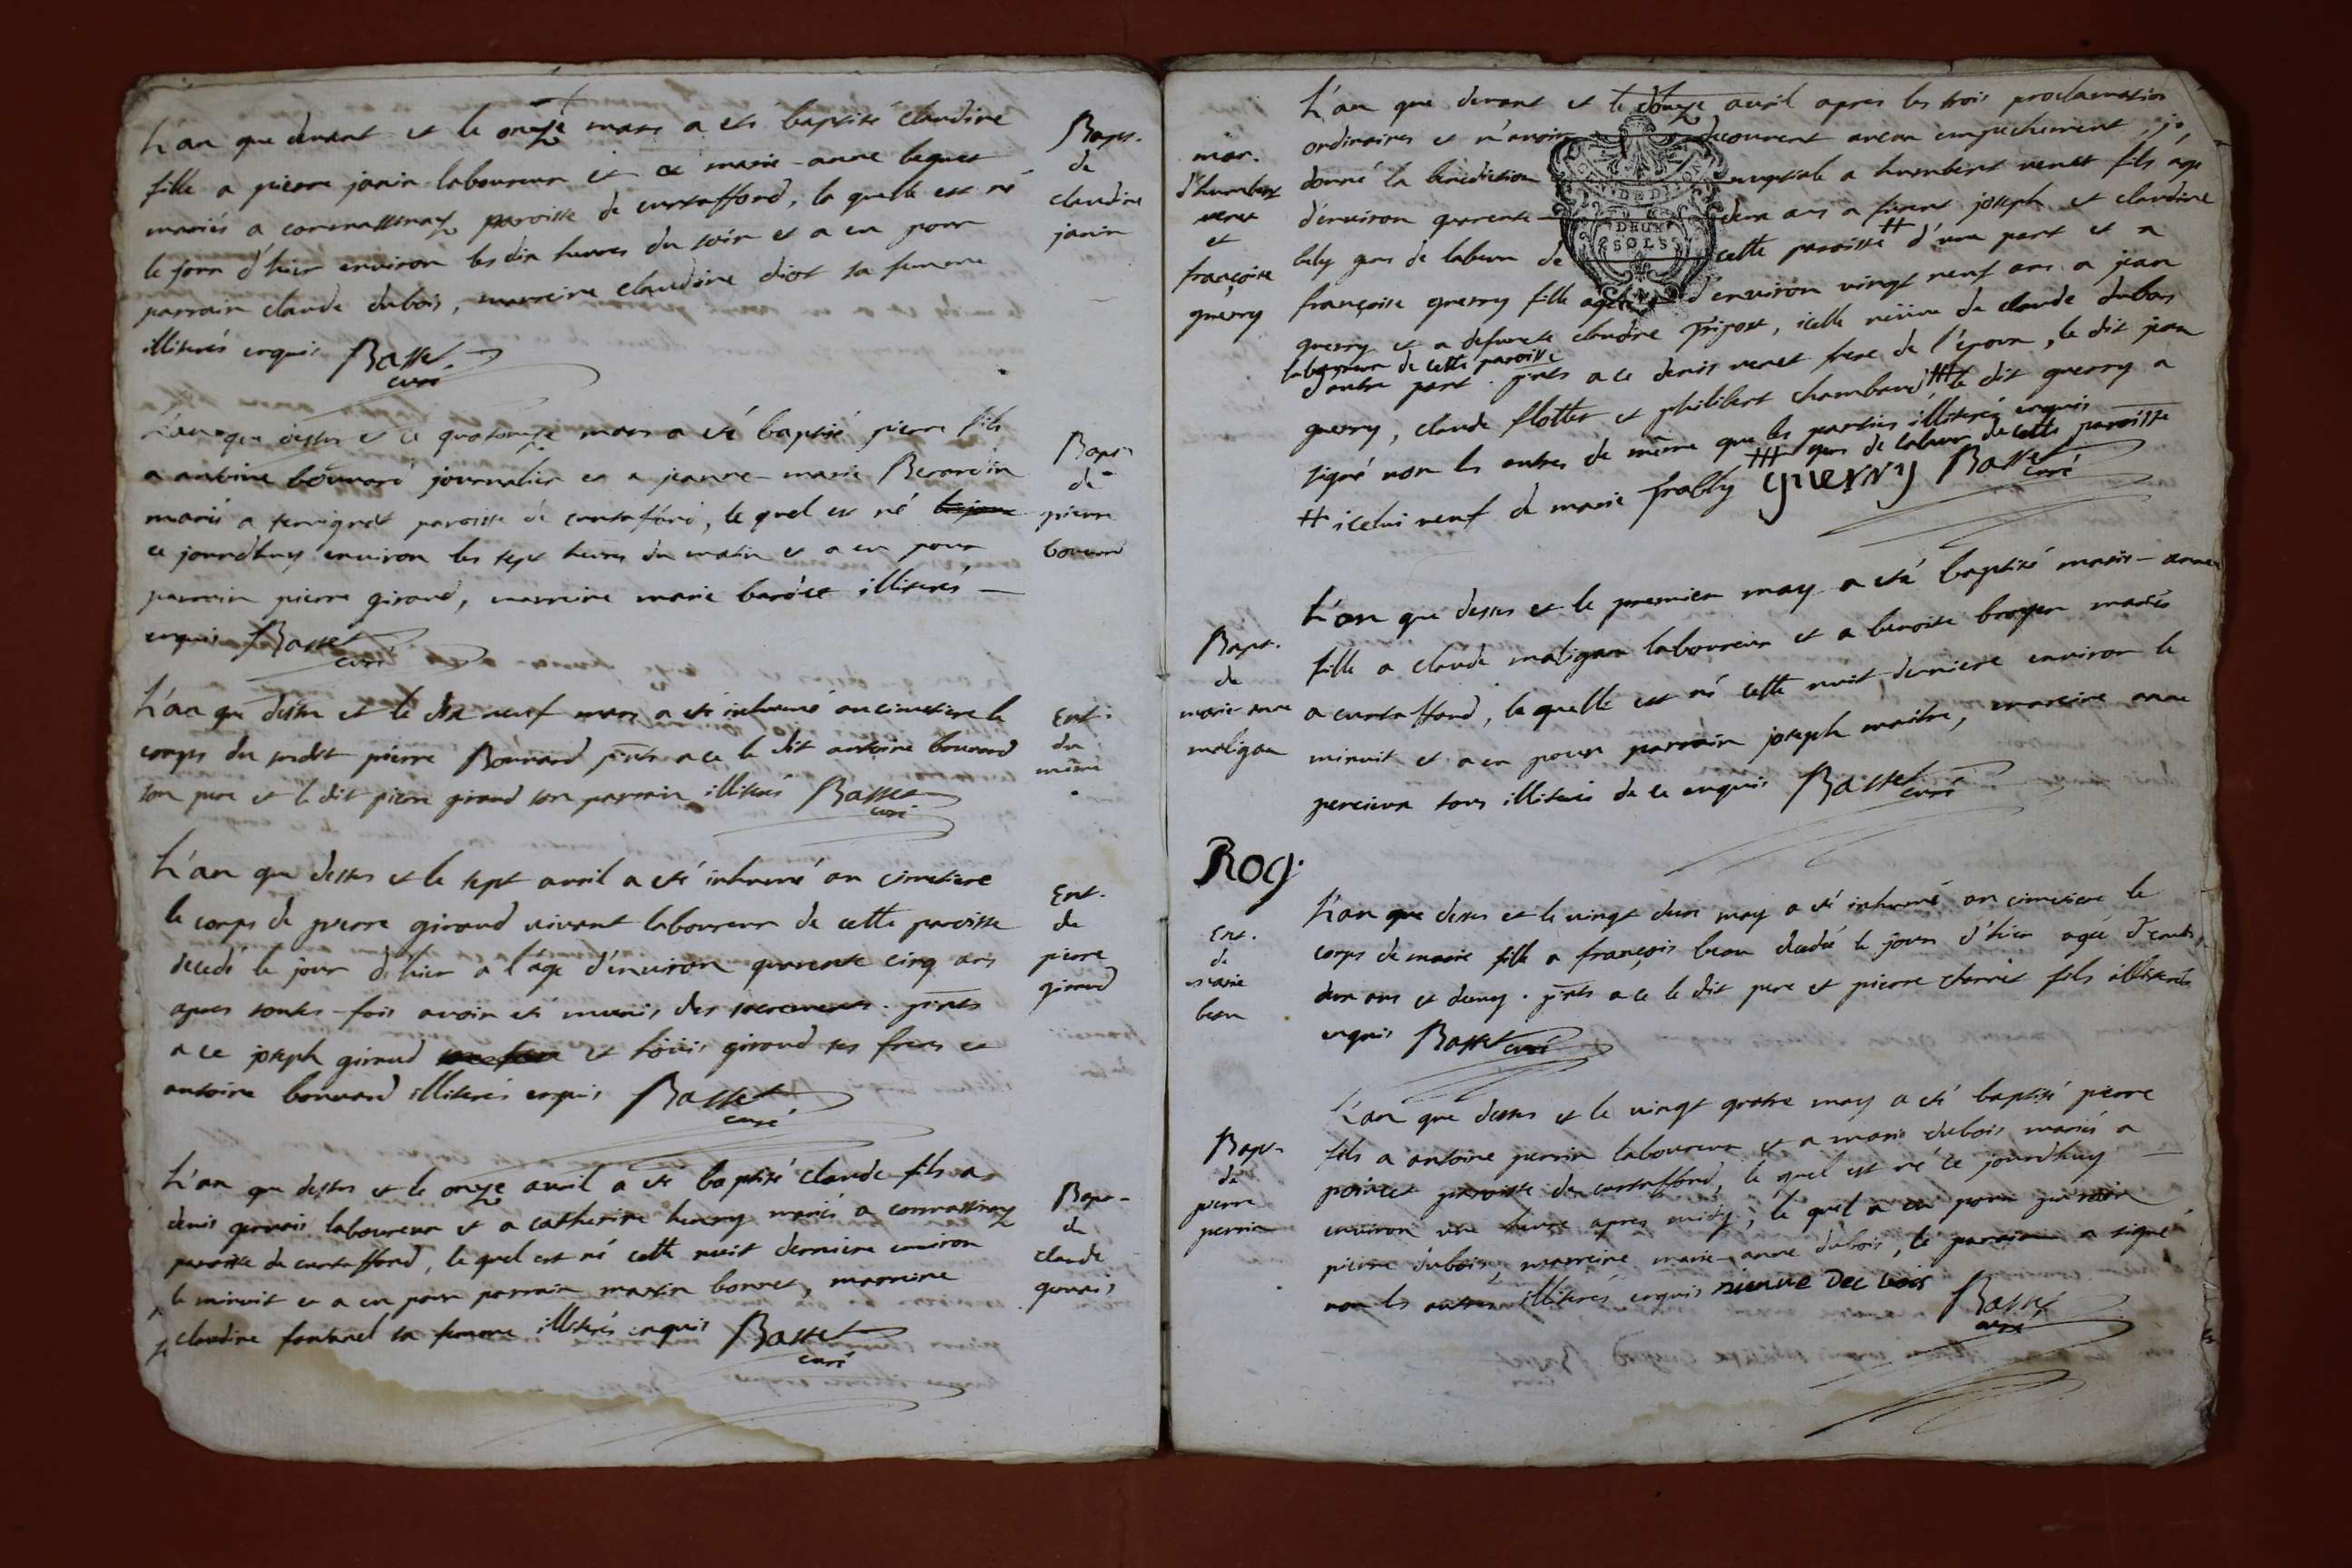 L'an que devant et le onze mars a eté baptisé claudine
fille a pierre janin laboureur et a marie-anne bequet
mariés a connassonay paroisse de curtaffond, la quelle est né
le jour d'hier environ les dix heures du soir et a eu pour
parrain claude dubois, marreine claudine diot sa femme
illiterés enquis Basset
curé
Bapt.
de
claudine
janin
L'an que dessus et le quatorze mars a eté baptisé pierre fils
a antoine bouvard journalier et a jeanne-marie Berardin
mariés a paroisse de curtafond, le quel est né
ce jourdhuy environ les sept heures du matin et a eu pour
parrain pierre giraud, marreine marie illiterés
enquis Basset
curé
Bapt.
de
pierre
bouvard
L'an que dessus et le dix neuf mars a eté inhumé au cimetiere le
corps du susdit pierre Bouvard prnts a ce le dit antoine bouvard
son pere et le dit pierre giraud son parrain illiterés Basset
curé
Ent.
du
même
L'an que dessus et le sept avril a eté inhumé au cimetiere
le corps de pierre giraud vivant laboureur de cette paroisse
decedé le jour d'hier a l'âge d'environ quarente cinq ans
apres toutes-fois avoir eté munis des sacrements. prnts
a ce joseph giraud et loüis giraud ses freres et
antoine bouvard illiterés enquis Basset
curé
Ent.
de
pierre
giraud
L'an que dessus et le onze avril a eté baptisé claude fils a
denis gervais laboureur et a catherine henry mariés a connassonay
paroisse de curtaffond, le quel est né cette nuit derniere environ
le minuit et a eu pour parrain martin bonnet, marreine
claudine fontanel sa femme illiterés enquis Basset
curé
Bapt.
de
claude
gervais
L'an que devant et le douze avril apres les trois proclamation
ordinaires et n'avoir decouvert aucun empechement, je
donné la benediction nuptiale a humbert venet fils âgé
d'environ quarente deux ans a feu joseph et claudine
bely gens de labeur de cette paroisse # d'une part et a
françoise guerry fille agée d'environ vingt neuf ans a jean
guerry et a defuncte claudine Tripost, icelle veuve de claude dubois
laboureur de cette paroisse
d'autre part. prnts a ce denis venet frere de l'époux, le dit jean
guerry, claude flottet et philibert chambaud ## le dit guerry a
signé non les autres de même que les parties illiterés enquis
## gens de labeur de cette paroisse
# icelui veuf de marie frably guerry Basset
curé
mar.
d'humbert
venet
et
françoise
guerry
L'an que dessus et le premier may a eté baptisé marie-anne
fille a claude maligau laboureur et a benoite broyer mariés
a curtaffond, la quelle est né cette nuit derniere environ le
minuit et a eu pour parrain joseph maitre, marreine anne
tous illiterés de ce enquis Basset
curé
Bapt.
de
marie-anne
maligau
Rog.
L'an que dessus et le vingt deux may a eté inhumé au cimetiere le
corps de marie fille a françois beau decedée le jour d'hier agée d'environ
deux ans et demy. prnts a ce le dit pere et pierre fils illiterés
enquis Basset curé
Ent.
de
marie
beau
L'an que dessus et le vingt quatre may a eté baptisé pierre
fils a antoine perrin laboureur et a marie dubois mariés a
poincet paroisse de curtaffond, le quel est né ce jourdhuy
environ une heure apres midy, le quel a eu pour parrain
pierre dubois, marreine marie-anne dubois, le parrain a signé
non les autres illiterés enquis Basset
curé
Bapt.
de
pierre
perrin
DEUX
SOLS